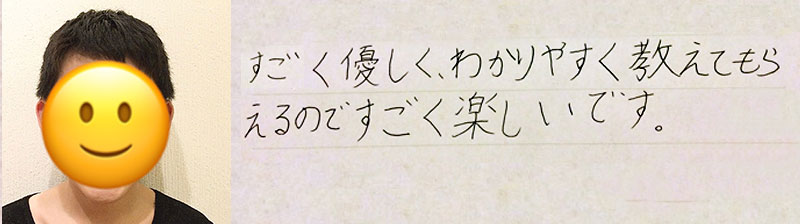 すごく優しく、わかりやすく教えてもら
えるのですごく楽しいです。